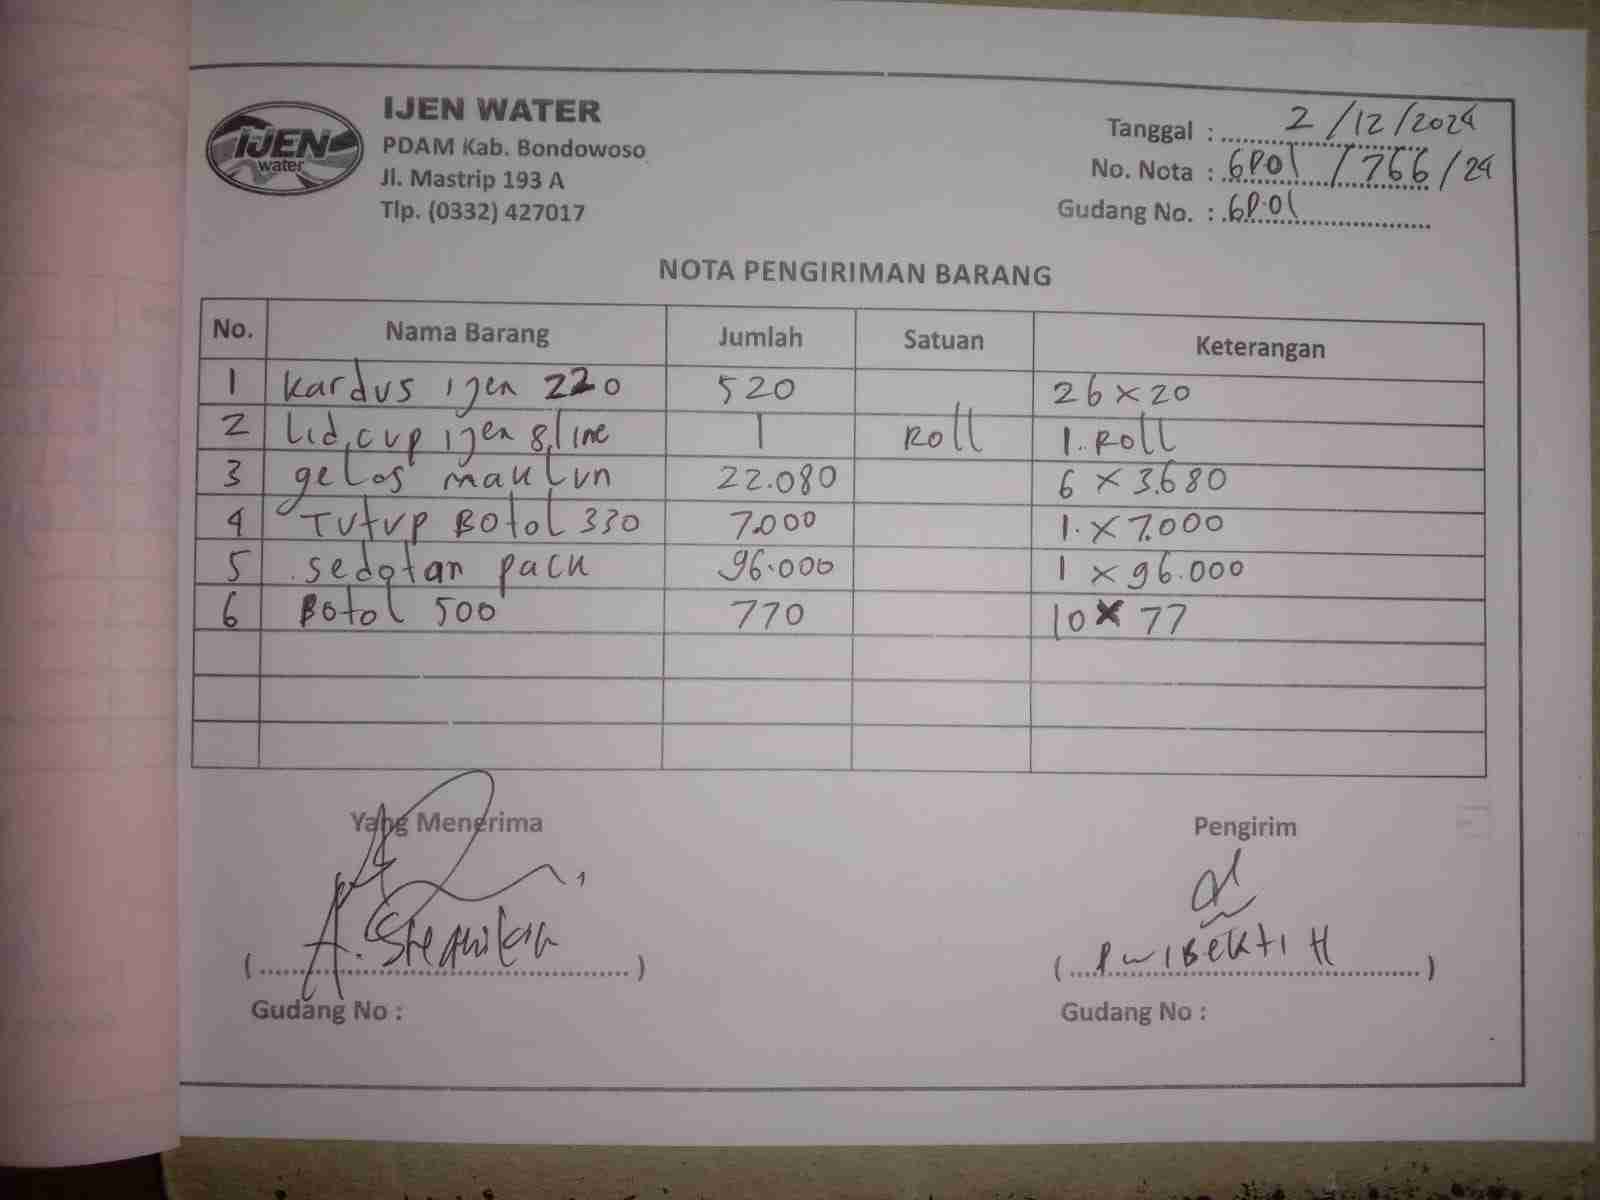 IJEN
water
IJEN WATER
PDAM Kab. Bondowoso
Jl. Mastrip 193 A
Tlp. (0332) 427017
Tanggal : 2/12/2024
No. Nota : GP01/766/24
Gudang No. : GP.01
NOTA PENGIRIMAN BARANG
No. Nama Barang Jumlah Satuan Keterangan
1 Kardus ijen 220 520 26 x 20
2 Lid cup ijen 8 line 1 Roll 1. Roll
3 gelas maklun 22.080 6 x 3.680
4 Tutup Botol 330 7.000 1. x 7.000
5 sedotan pack 96.000 1 x 96.000
6 Botol 500 770 10 x 77
Yang Menerima Pengirim
(A. ) (PwiBEkti H)
Gudang No : Gudang No :